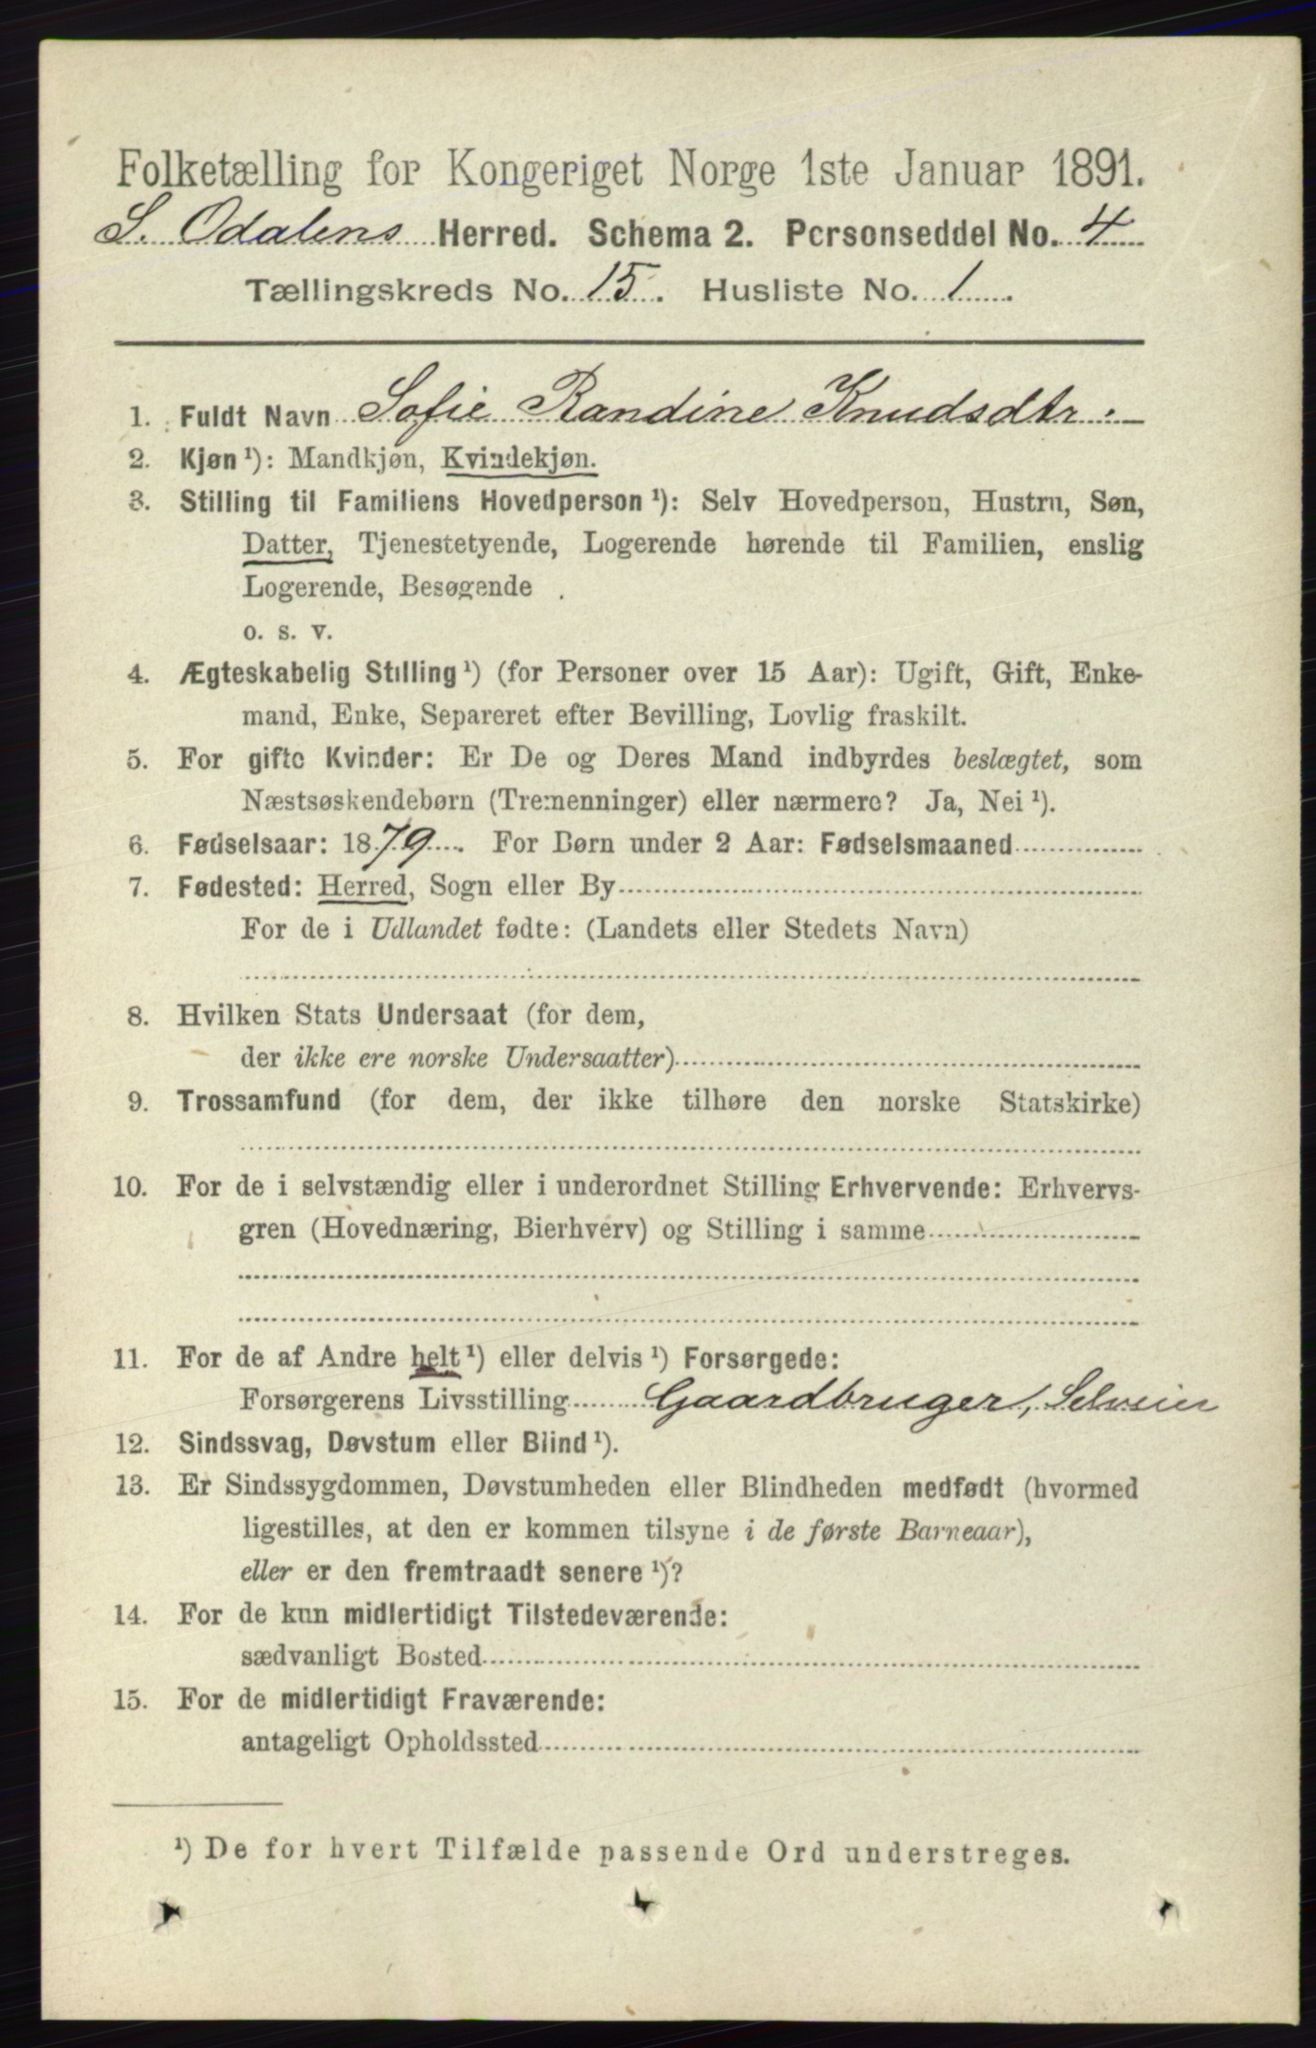 Folketælling for Kongeriget Norge 1ste Januar 1891.
S. Odalens Herred. Schema 2. Personseddel No. 4
Tællingskreds No. 15. Husliste No. 1
1. Fuldt Navn Sofie Randine Knudsdtr:
2. Kjøn¹): Mandkjøn, Kvindekjøn.
3. Stilling til Familiens Hovedperson¹): Selv Hovedperson, Hustru, Søn,
Datter, Tjenestetyende, Logerende hørende til Familien, enslig
Logerende, Besøgende
o. s. v.
4. Ægteskabelig Stilling¹) (for Personer over 15 Aar): Ugift, Gift, Enke-
mand, Enke, Separeret efter Bevilling, Lovlig fraskilt.
5. For gifte Kvinder: Er De og Deres Mand indbyrdes beslægtet, som
Næstsøskendebørn (Tremenninger) eller nærmere? Ja, Nei¹).
6. Fødselsaar: 1879. For Børn under 2 Aar: Fødselsmaaned
7. Fødested: Herred, Sogn eller By
For de i Udlandet fødte: (Landets eller Stedets Navn)
8. Hvilken Stats Undersaat (for dem,
der ikke ere norske Undersaatter)
9. Trossamfund (for dem, der ikke tilhøre den norske Statskirke)
10. For de i selvstændig eller i underordnet Stilling Erhvervende: Erhvervs-
gren (Hovednæring, Bierhverv) og Stilling i samme
11. For de af Andre helt¹) eller delvis¹) Forsørgede:
Forsørgerens Livsstilling Gaardbruger, Selveier
12. Sindssvag, Døvstum eller Blind¹).
13. Er Sindssygdommen, Døvstumheden eller Blindheden medfødt (hvormed
ligestilles, at den er kommen tilsyne i de første Barneaar),
eller er den fremtraadt senere¹)?
14. For de kun midlertidigt Tilstedeværende:
sædvanligt Bosted
15. For de midlertidigt Fraværende:
antageligt Opholdssted
¹) De for hvert Tilfælde passende Ord understreges.